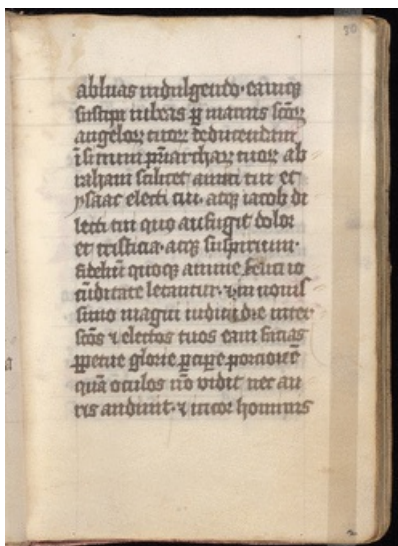 30
abluas indulgendo· eamq̃
suscipi iubeas ꝑ manus sc̃oꝝ
angeloꝝ tuoꝝ deducendam
ĩ sinum pr̃iarchaꝝ tuoꝝ ab
rahami scilicet amici tui et
ysaac electi tui· atq̃ iacob di
lecti tui quo aufugit dolor
et tristicia· atq̃ suspirium·
fideliũ quoq̃ anime felici io
cũditate letantur· ⁊ in nouis
simo magni iudicii die inter
sc̃os ⁊ electos tuos eam facias
ꝑpetue glorie ꝑcipe porcionẽ
quã oculos nõ vidit nec au
ris audiuit· ⁊ in cor hominis